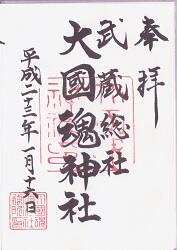 奉拝
武蔵総社
大國魂神社
平成二十三年一月十六日